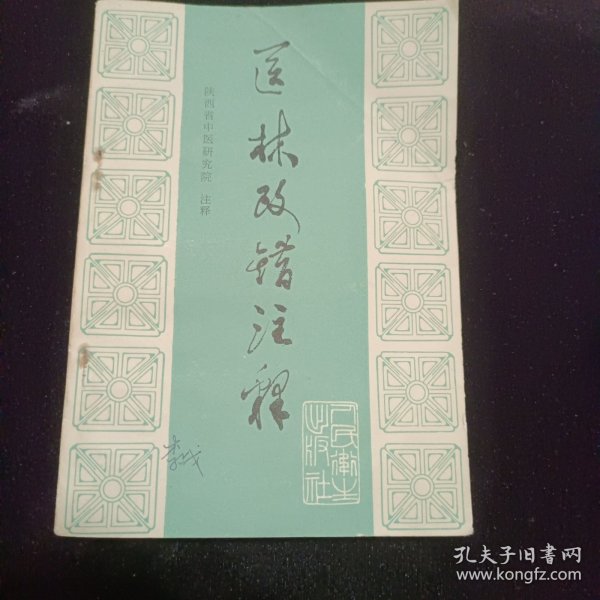 医林改错注释
陕西省中医研究院 注释
人民卫生
出版社
孔夫子旧书网
www.kongfz.com